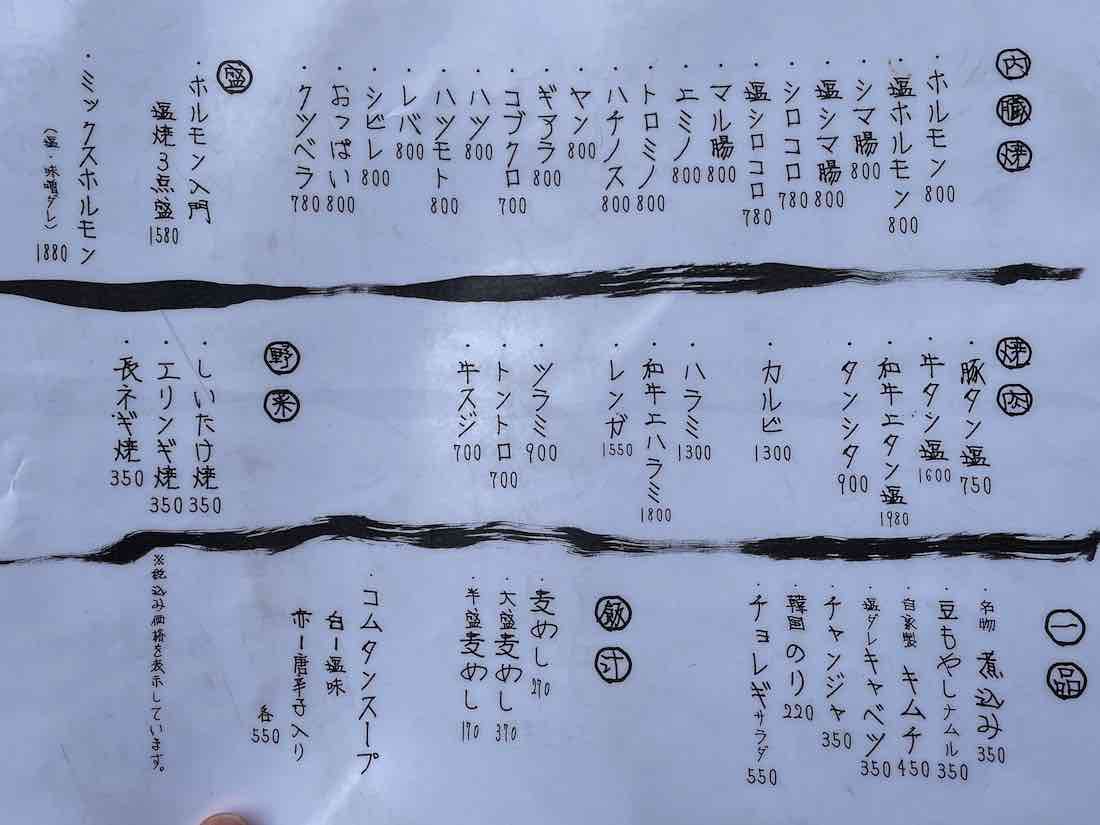 内臓焼
・ホルモン 800
・塩ホルモン 800
・シマ腸 800
・塩シマ腸 800
・シロコロ 780
・塩シロコロ 780
・マル腸 800
・エミノ 800
・トロミノ 800
・ハチノス 800
・ヤン 800
・ギアラ 800
・コブクロ 700
・ハツ 800
・ハツモト 800
・レバ 800
・シビレ 800
・おっぱい 800
・クツベラ 780
盛
・ホルモン入門
塩焼3点盛 1580
・ミックスホルモン
(塩・味噌ダレ) 1880
焼肉
・豚タン塩 750
・牛タン塩 1600
・和牛上タン塩 1980
・タンシタ 900
・カルビ 1300
・ハラミ 1300
・和牛上ハラミ 1800
・レンガ 1550
・ツラミ 900
・トントロ 700
・牛スジ 700
野菜
・しいたけ焼 350
・エリンギ焼 350
・長ネギ焼 350
一品
・名物 煮込み 350
・豆もやしナムル 350
・自家製 キムチ 450
・塩ダレキャベツ 350
・チャンジャ 350
・韓国のり 220
・チョレギサラダ 550
飯汁
・麦めし 270
・大盛麦めし 370
・半盛麦めし 170
・コムタンスープ
白ー塩味
赤ー唐辛子入り
各550
※税込み価格を表示しています。